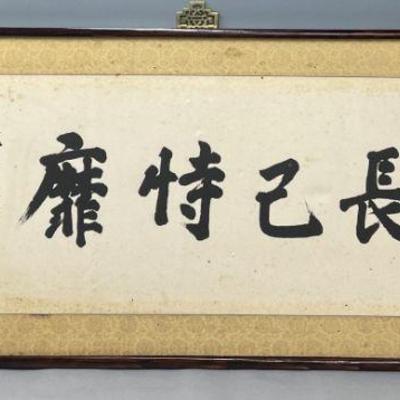 靡恃己長